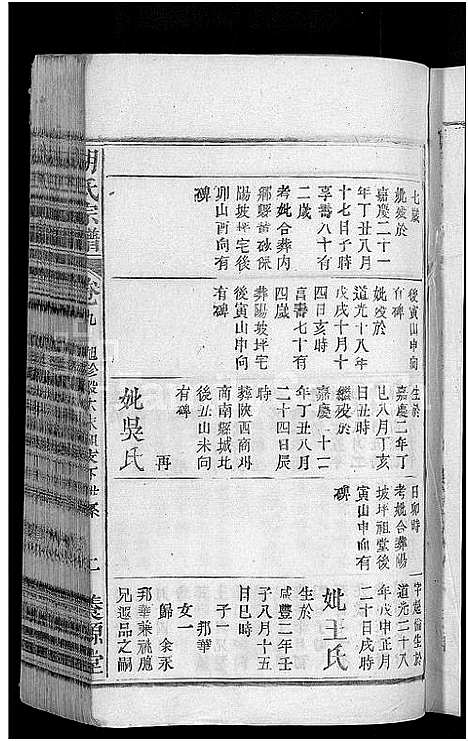 七歲
妣歿於
嘉慶二十一
年丁丑八月
十七日子時
享壽八十有
二歲
考妣合葬內
鄉縣黃砂保
陽坡坪宅後
卯山酉向有
碑
後寅山申向
有碑
妣歿於
道光十八年
戊戌十月十
四日亥時
享壽七十有
四歲
葬陽坡坪宅
後寅山申向
有碑
生於
嘉慶二年丁
巳八月丁亥
日丑時
繼歿於
嘉慶二十二
年丁丑八月
二十四日辰
時
葬陝西商州
商南縣城北
後丑山未向
有碑
再
妣吳氏
日卯時
考妣合葬陽
坡坪祖堂後
寅山申向有
碑
字超倫生於
道光二十八
年戊申正月
二十日戌時
妣王氏
生於
咸豐二年壬
子八月十五
日巳時
子一
邦華
女一
歸 余永
邦華兼祧胞
兄遐品之嗣
胡氏宗譜
卷九
七
養源堂